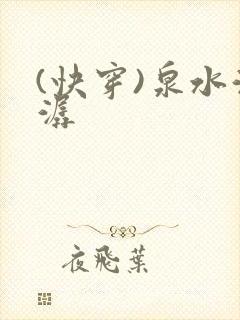 (快穿)泉水
潺
夜飛葉